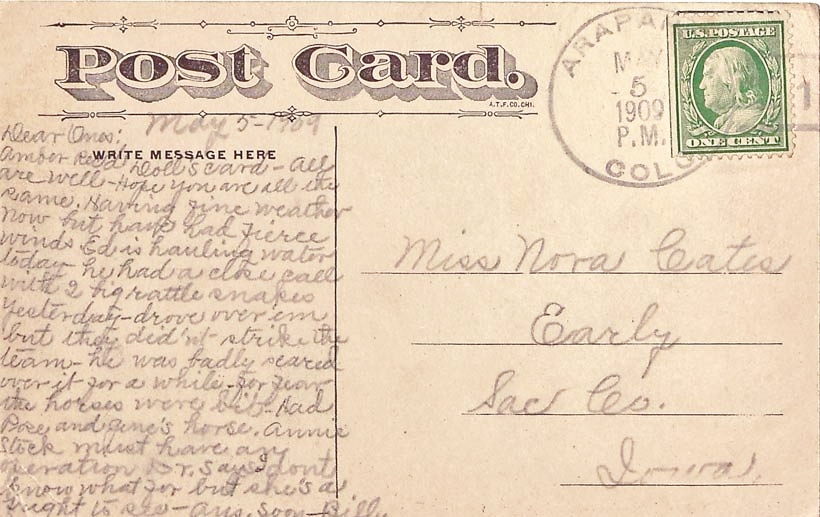 Post Card.
A.T.F.CO.CHI.
WRITE MESSAGE HERE
ARAPAHOE
MAY
5
1909
P.M.
COLO
U.S. POSTAGE
ONE CENT
1
May 5-1909
Dear Ones:
Amber Rec'd Doll's card - All
are well - Hope you are all the
same. Having fine weather
now but have had fierce
winds Ed is hauling water
today he had a close call
with 2 big rattle snakes
yesterday - drove over em
but they did'nt strike the
team - he was badly scared
over it for a while - for fear
the horses were bit - Had
and horse. Annie
Stock must have an
operation Dr. says I dont
know what for but she's a
sight to see - Ans. soon - Billy
Miss Nora Cates
Early
Sac Co.
Iowa.